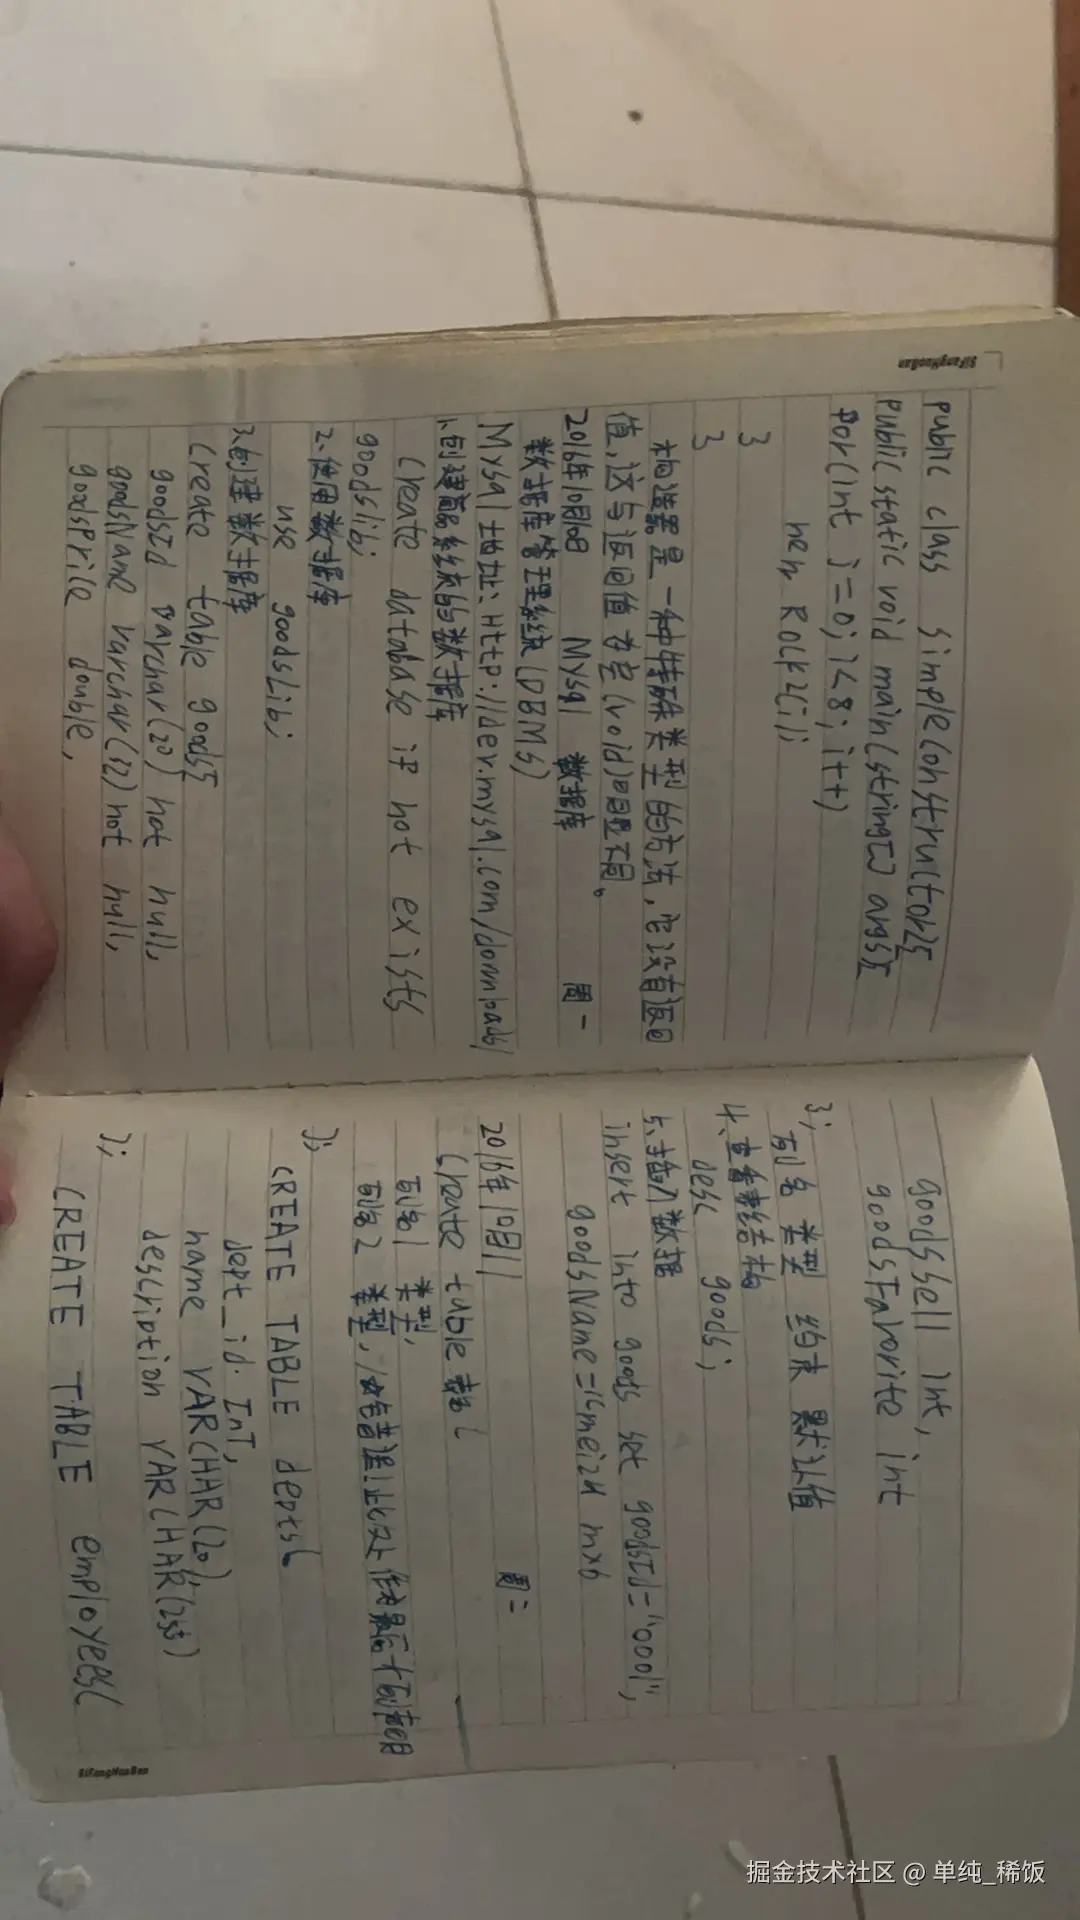 SiFangHuaBen
public class SimpleConstructor2{
public static void main(string[] args){
for(int i=0; i<8; i++)
new Rock2(i);
}
}
构造器是一种特殊类型的方法,它没有返回
值,这与返回值为空(void)明显不同。
2016年10月10日 Mysql 数据库 周一
数据库管理系统(DBMS)
Mysql 地址:Http://dev.mysql.com/downloads/
1.创建商品系统的数据库
Create database if not exists
goodslib;
2.使用数据库
use goodsLib;
3.创建数据库
Create table goods{
goodsId varchar(20) not null,
goodsName varchar(32) not null,
goodsPrice double,
goodsSell int,
goodsFavorite int
};
列名 类型 约束 默认值
4.查看表结构
desc goods;
5.插入数据
insert into goods set goodsId="0001",
goodsName="meizu mx6
2016年10月11 周二
Create table 表名(
列名1 类型,
列名2 类型,
);
CREATE TABLE depts(
dept_id InT,
name VARCHAR(20),
description VARCHAR(255)
);
CREATE TABLE employees(
SiFangHuaBen
掘金技术社区 @ 单纯_稀饭